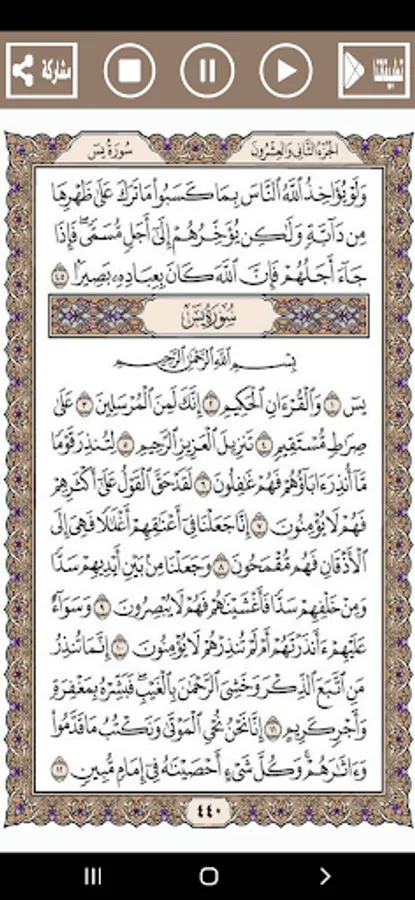 مشاركة تطبيقاتنا
الجزء الثاني والعشرون سورة يس
وَلَوْ يُؤَاخِذُ ٱللَّهُ ٱلنَّاسَ بِمَا كَسَبُوا۟ مَا تَرَكَ عَلَىٰ ظَهْرِهَا
مِن دَآبَّةٍ وَلَـٰكِن يُؤَخِّرُهُمْ إِلَىٰٓ أَجَلٍ مُّسَمًّى ۖ فَإِذَا
جَآءَ أَجَلُهُمْ فَإِنَّ ٱللَّهَ كَانَ بِعِبَادِهِۦ بَصِيرًۢا ٤٥
سُورَةُ يسٓ
بِسْمِ ٱللَّهِ ٱلرَّحْمَـٰنِ ٱلرَّحِيمِ
يسٓ ١ وَٱلْقُرْءَانِ ٱلْحَكِيمِ ٢ إِنَّكَ لَمِنَ ٱلْمُرْسَلِينَ ٣ عَلَىٰ
صِرَٰطٍ مُّسْتَقِيمٍ ٤ تَنزِيلَ ٱلْعَزِيزِ ٱلرَّحِيمِ ٥ لِتُنذِرَ قَوْمًا
مَّآ أُنذِرَ ءَابَآؤُهُمْ فَهُمْ غَـٰفِلُونَ ٦ لَقَدْ حَقَّ ٱلْقَوْلُ عَلَىٰٓ أَكْثَرِهِمْ
فَهُمْ لَا يُؤْمِنُونَ ٧ إِنَّا جَعَلْنَا فِىٓ أَعْنَـٰقِهِمْ أَغْلَـٰلًا فَهِىَ إِلَى
ٱلْأَذْقَانِ فَهُم مُّقْمَحُونَ ٨ وَجَعَلْنَا مِنۢ بَيْنِ أَيْدِيهِمْ سَدًّا
وَمِنْ خَلْفِهِمْ سَدًّا فَأَغْشَيْنَـٰهُمْ فَهُمْ لَا يُبْصِرُونَ ٩ وَسَوَآءٌ
عَلَيْهِمْ ءَأَنذَرْتَهُمْ أَمْ لَمْ تُنذِرْهُمْ لَا يُؤْمِنُونَ ١٠ إِنَّمَا تُنذِرُ
مَنِ ٱتَّبَعَ ٱلذِّكْرَ وَخَشِىَ ٱلرَّحْمَـٰنَ بِٱلْغَيْبِ ۖ فَبَشِّرْهُ بِمَغْفِرَةٍ
وَأَجْرٍ كَرِيمٍ ١١ إِنَّا نَحْنُ نُحْىِ ٱلْمَوْتَىٰ وَنَكْتُبُ مَا قَدَّمُوا۟
وَءَاثَـٰرَهُمْ ۚ وَكُلَّ شَىْءٍ أَحْصَيْنَـٰهُ فِىٓ إِمَامٍ مُّبِينٍ ١٢
٤٤٠